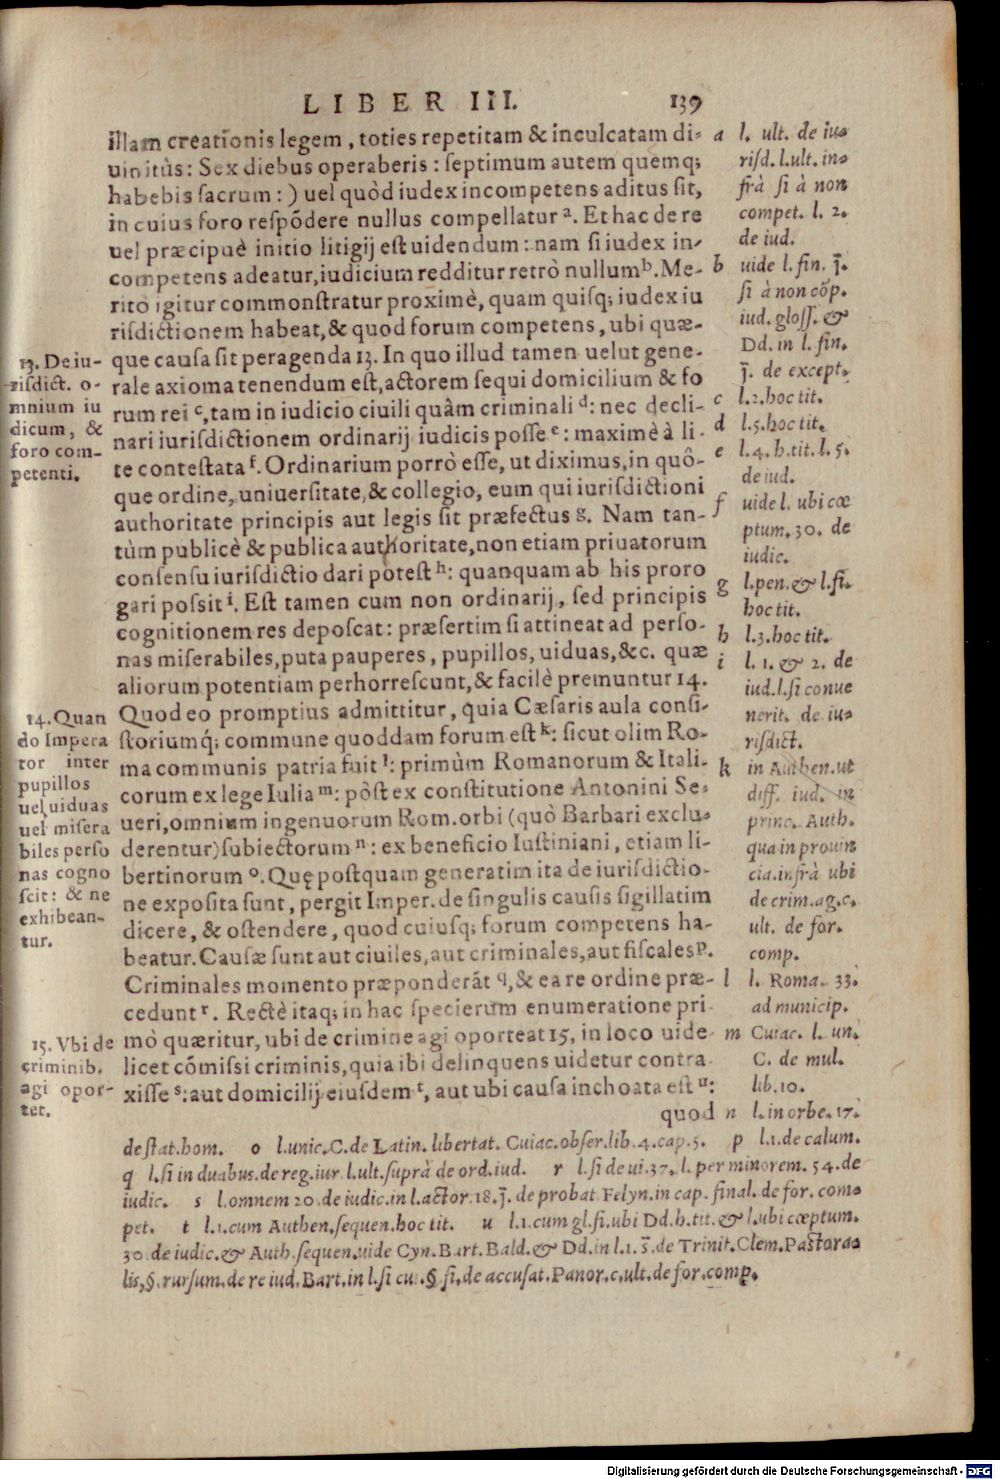 LIBER III. 139
illam creationis legem, toties repetitam & inculcatam di=
uinitùs: Sex diebus operaberis: septimum autem quemq;
habebis sacrum:) uel quòd iudex incompetens aditus sit,
in cuius foro respõdere nullus compellatur ª. Et hac de re
uel præcipuè initio litigij est uidendum: nam si iudex in-
competens adeatur, iudicium redditur retrò nullum ᵇ. Me-
ritò igitur commonstratur proximè, quam quisq; iudex iu
risdictionem habeat, & quod forum competens, ubi quæ-
que causa sit peragenda 13. In quo illud tamen uelut gene-
rale axioma tenendum est, actorem sequi domicilium & fo
rum rei ᶜ, tam in iudicio ciuili quàm criminali ᵈ: nec decli-
nari iurisdictionem ordinarij iudicis posse ᵉ: maximè à li-
te contestata ᶠ. Ordinarium porrò esse, ut diximus, in quô-
que ordine, uniuersitate, & collegio, eum qui iurisdictioni
authoritate principis aut legis sit præfectus ᵍ. Nam tan-
tùm publicè & publica authoritate, non etiam priuatorum
consensu iurisdictio dari potest ʰ: quanquam ab his proro
gari possit ⁱ. Est tamen cum non ordinarij, sed principis
cognitionem res deposcat: præsertim si attineat ad perso-
nas miserabiles, puta pauperes, pupillos, uiduas, &c. quæ
aliorum potentiam perhorrescunt, & facilè premuntur 14.
Quod eo promptius admittitur, quia Cæsaris aula consi-
storiumq́; commune quoddam forum est ᵏ: sicut olim Ro-
ma communis patria fuit ˡ: primùm Romanorum & Itali-
corum ex lege Iulia ᵐ: pòst ex constitutione Antonini Se-
ueri, omnium ingenuorum Rom. orbi (quò Barbari exclu-
derentur) subiectorum ⁿ: ex beneficio Iustiniani, etiam li-
bertinorum º. Quę postquam generatim ita de iurisdictio-
ne exposita sunt, pergit Imper. de singulis causis sigillatim
dicere, & ostendere, quod cuiusq; forum competens ha-
beatur. Causæ sunt aut ciuiles, aut criminales, aut fiscales ᵖ.
Criminales momento præponderãt q, & ea re ordine præ-
cedunt ʳ. Rectè itaq; in hac specierum enumeratione pri
mò quæritur, ubi de crimine agi oporteat 15, in loco uide
licet cõmissi criminis, quia ibi delinquens uidetur contra
xisse ˢ: aut domicilij eiusdem ᵗ, aut ubi causa inchoata est ᵘ:
quod
13. De iu-
risdict. o-
mnium iu
dicum, &
foro com-
petenti.
14. Quan
do Impera
tor inter
pupillos
uel uiduas
uel misera
biles perso
nas cogno
scit: & ne
exhibean-
tur.
15. Vbi de
criminib.
agi opor-
tet.
a l. ult. de iu=
risd. l. ult. in=
frà si à non
compet. l. 2.
de iud.
b uide l. fin. j̃.
si à non cõp.
iud. gloss. &
Dd. in l. fin.
j̃. de except.
c l. 2. hoc tit.
d l. 5. hoc tit.
e l. 4. h. tit. l. 5.
de iud.
f uide l. ubi cœ
ptum. 30. de
iudic.
g l. pen. & l. fi.
hoc tit.
h l. 3. hoc tit.
i l. 1. & 2. de
iud. l. si conue
nerit. de iu=
risdict.
k in Authen. ut
diff. iud. in
princ. Auth.
qua in prouin
cia. infrà ubi
de crim. ag. c.
ult. de for.
comp.
l l. Roma. 33.
ad municip.
m Cuiac. l. un.
C. de mul.
lib. 10.
n l. in orbe. 17.
de stat. hom. o l. unic. C. de Latin. libertat. Cuiac. obser. lib. 4. cap. 5. p l. 1. de calum.
q l. si in duabus. de reg. iur. l. ult. suprà de ord. iud. r l. si de ui. 37. l. per minorem. 54. de
iudic. s l. omnem 20. de iudic. in l. actor. 18. j̃. de probat. Felyn. in cap. final. de for. com=
pet. t l. 1. cum Authen. sequen. hoc tit. u l. 1. cum gl. fi. ubi Dd. h. tit. & l. ubi cœptum.
30. de iudic. & Auth. sequen. uide Cyn. Bart. Bald. & Dd. in l. 1. s̃. de Trinit. Clem. Pastora=
lis, §. rursum. de re iud. Bart. in l. si cui. § fi. de accusat. Panor. c. ult. de for. comp.
Digitalisierung gefördert durch die Deutsche Forschungsgemeinschaft - DFG